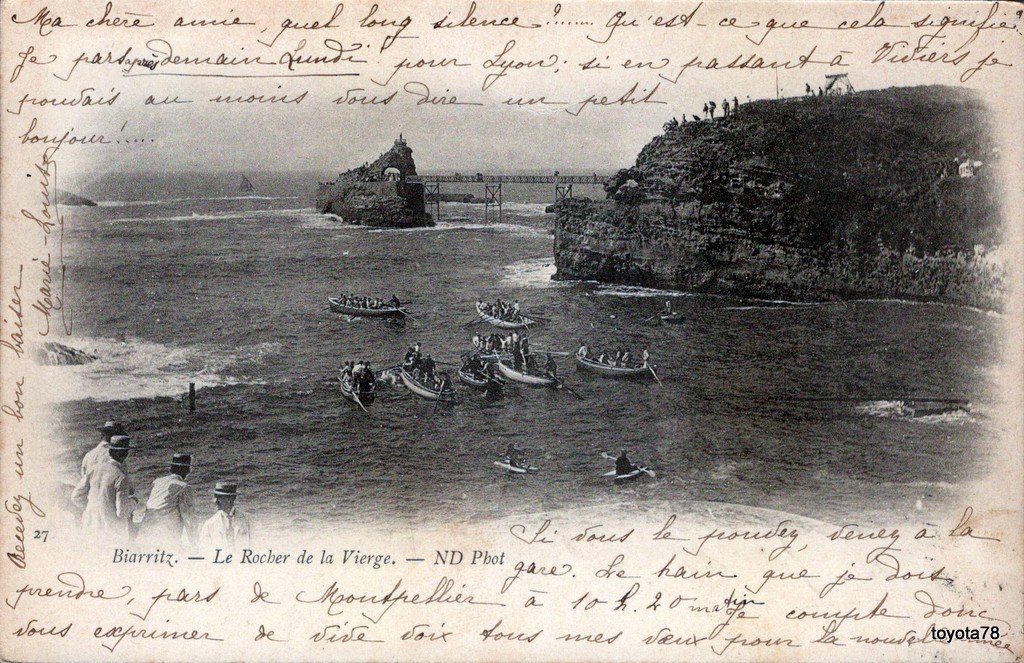 Ma chère amie, quel long silence?...... Qu'est-ce que cela signifie?
Je pars après demain Lundi pour Lyon; si en passant à Viviers je
pouvais au moins vous dire un petit
bonjour!.....
Si vous le pouvez, venez à la
gare. Le train que je dois
prendre, pars de Montpellier à 10h. 20 matin Je compte donc
vous exprimer de vive voix tous mes vœux pour la nouvelle année
un bon baiser
Marie-Louise
27
Biarritz. — Le Rocher de la Vierge. — ND Phot
toyota78